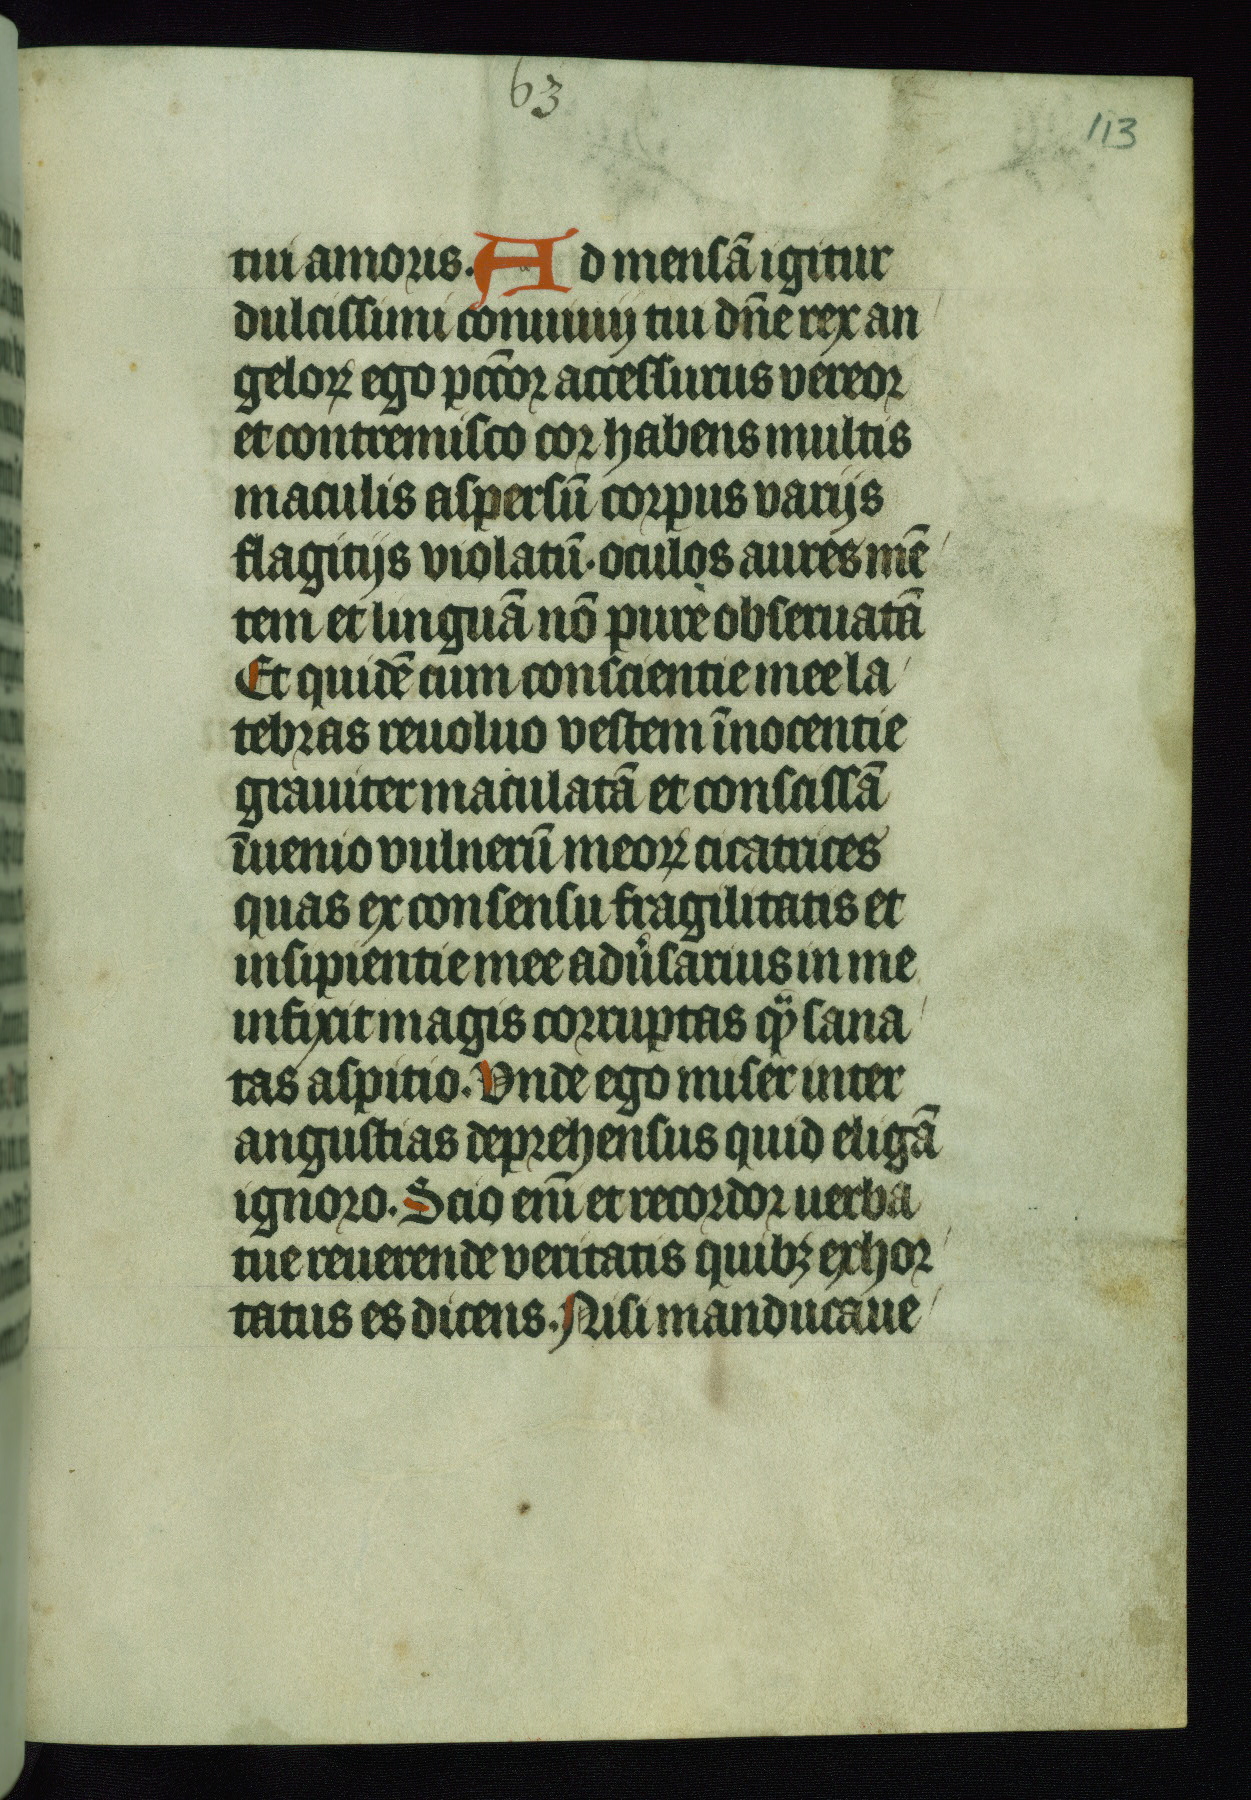 63
113
tui amoris. Ad mensā igitur
dulcissimi conuiuij tui dn̄e rex an
geloꝝ ego pctōr accessurus vereor
et contremisco cor habens multis
maculis aspersū corpus varijs
flagitijs violatū. oculos aures mē
tem et linguā nō pure obseruatā
Et quidē cum conscientie mee la
tebras reuoluo vestem īnocentie
grauiter maculatā et conscissā
īuenio vulnerū meoꝝ cicatrices
quas ex consensu fragilitatis et
insipientie mee adu͛sarius in me
infixit magis corruptas qͣ̈ sana
tas aspitio. Vnde ego miser inter
angustias deprehensus quid eligā
ignoro. Scio eni̅ et recordor uerba
tue reuerende veritatis quibꝫ exhor
tatus es dicens. Nisi manducaue